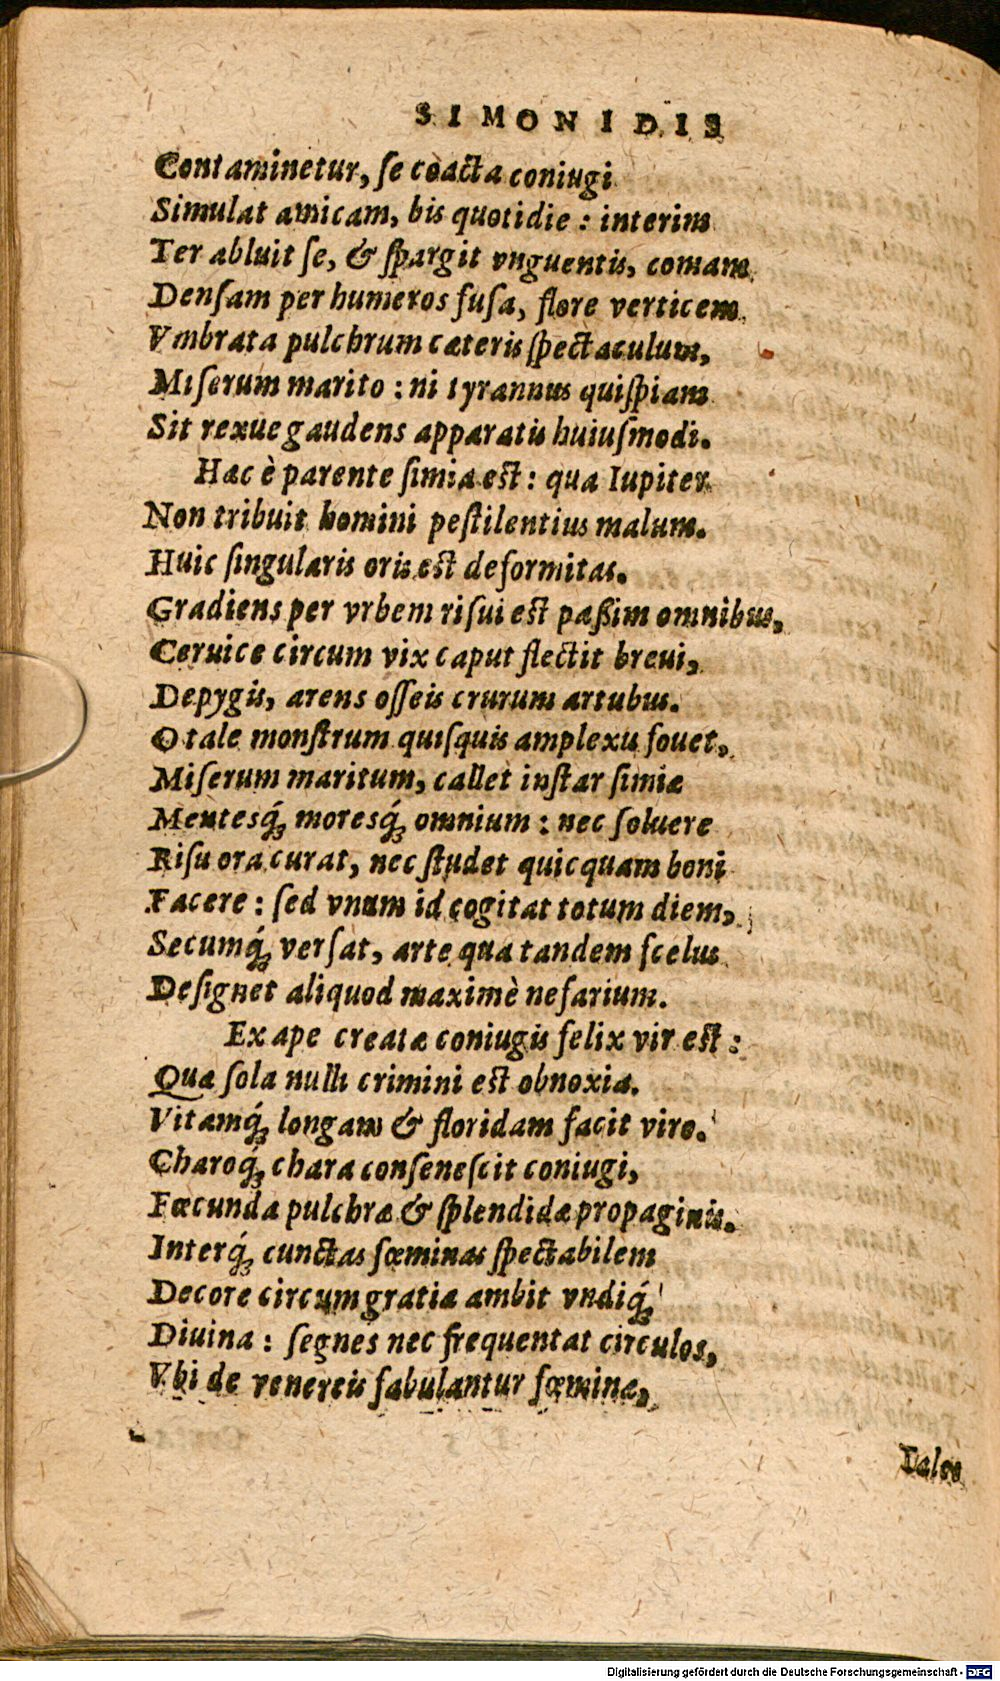 SIMONIDIS
Contaminetur, ſe coacta coniugi
Simulat amicam, bis quotidie : interim
Ter abluit ſe, & ſpargit vnguentis, comam
Denſam per humeros fuſa, flore verticem
Vmbrata pulchrum cæteris ſpectaculum,
Miſerum marito : ni tyrannus quiſpiam
Sit rexue gaudens apparatis huiuſmodi.
Hæc è parente ſimia est : qua Iupiter
Non tribuit homini peſtilentius malum.
Huic ſingularis oris est deformitas.
Gradiens per vrbem riſui est paßim omnibus,
Ceruice circum vix caput flectit breui,
Depygis, arens oſſeis crurum artubus.
O tale monſtrum quiſquis amplexu fouet,
Miſerum maritum, callet inſtar ſimiæ
Mentesq́; moresq́; omnium : nec ſoluere
Riſu ora curat, nec ſtudet quicquam boni
Facere : ſed vnum id cogitat totum diem,
Secumq́; verſat, arte qua tandem ſcelus
Deſignet aliquod maximè nefarium.
Ex ape creatæ coniugis felix vir est :
Quæ ſola nulli crimini est obnoxia.
Vitamq́; longam & floridam facit viro.
Charoq́; chara conſeneſcit coniugi,
Fœcunda pulchræ & ſplendidæ propaginis.
Interq́; cunctas fœminas ſpectabilem
Decore circum gratia ambit vndiq́;
Diuina : ſegnes nec frequentat circulos,
Vbi de venereis fabulantur fœminæ,
Taleis
Digitalisierung gefördert durch die Deutsche Forschungsgemeinschaft - DFG